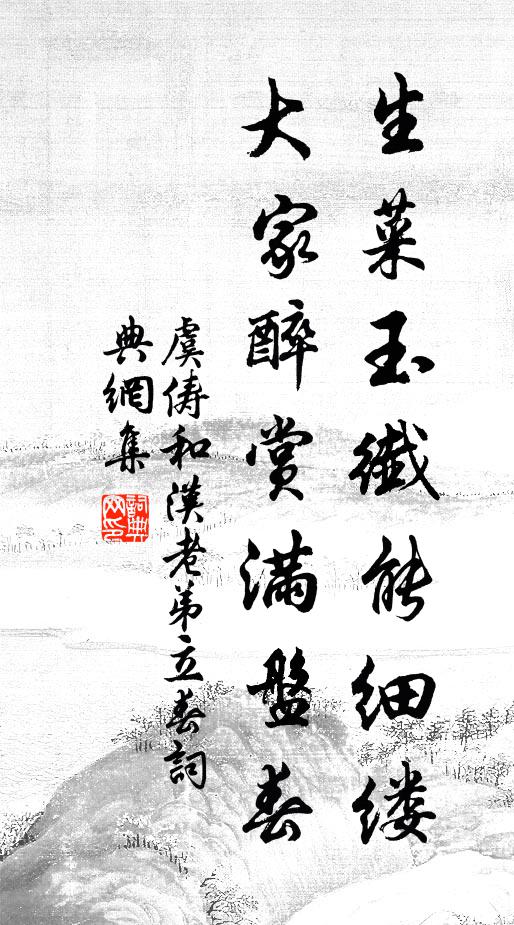 生菜玉纖能細缕
大家醉赏满盤春
虞俦和漢老弟立春詞
典網集
詞典網印